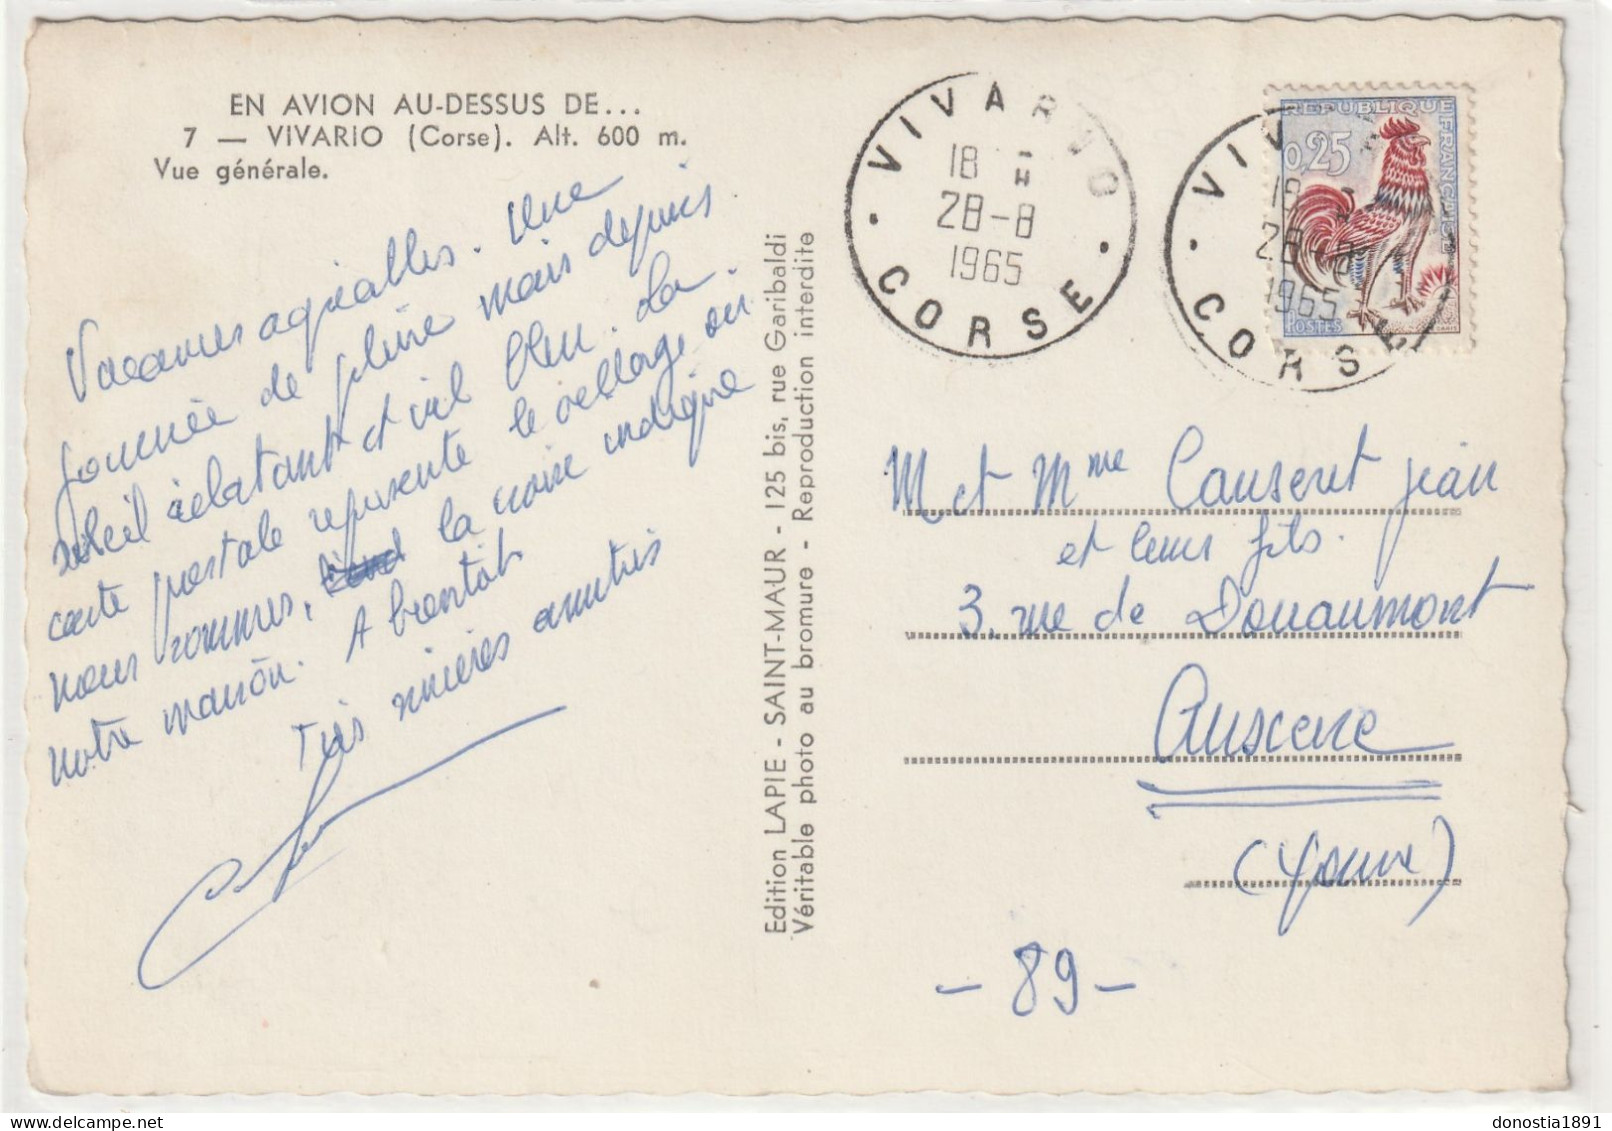 EN AVION AU-DESSUS DE...
7 — VIVARIO (Corse). Alt. 600 m.
Vue générale.
Vacances agréables. Une
journée de pluie mais depuis
soleil éclatant et ciel bleu. La
carte postale représente le village où
nous sommes, la croix indique
notre maison. A bientôt
Très sincères amitiés
Edition LAPIE - SAINT-MAUR - 125 bis, rue Garibaldi
Véritable photo au bromure - Reproduction interdite
VIVARIO
18 H
28-8
1965
CORSE
VIVARIO
18 H
28-8
1965
CORSE
REPUBLIQUE FRANÇAISE
0,25
POSTES
M et Mme Causeret Jean
et leurs fils.
3, rue de Douaumont
Auxerre
(Yonne)
- 89 -
donostia1891